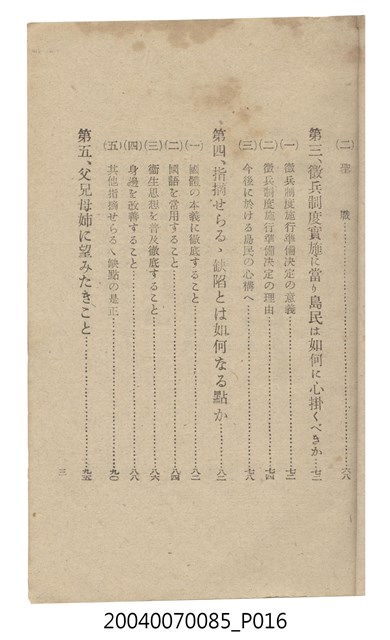 (二) 聖戰……六八
第三、徵兵制度實施に當り島民は如何に心掛くべきか…七二
(一) 徵兵制度施行準備決定の意義……七二
(二) 徵兵制度施行準備決定の理由……七四
(三) 今後に於ける島民の心構へ……七八
第四、指摘せらるゝ缺陷とは如何なる點か……八二
(一) 國體の本義に徹底すること……八二
(二) 國語を常用すること……八四
(三) 衞生思想を普及徹底すること……八六
(四) 身邊を改善すること……八八
(五) 其他指摘せらるゝ缺點の是正……九〇
第五、父兄母姉に望みたきこと……九五
三
20040070085_P016